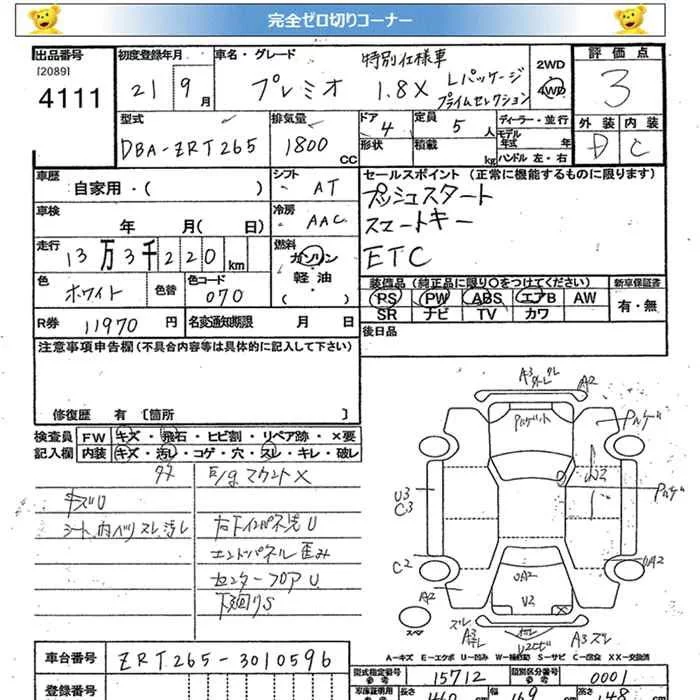 完全ゼロ切りコーナー
出品番号
[2089]
4111
初度登録年月
21 9月
車名・グレード
プレミオ 1.8X
特別仕様車
Lパッケージ
プライムセレクション
2WD
4WD
評価点
3
外装 内装
D C
型式
DBA-ZRT265
排気量
1800 CC
ドア 4
定員 5 人
形状
積載 kg
ディーラー・並行
モデル
年式 年
ハンドル 左・右
車歴
自家用・( )
シフト
AT
セールスポイント (正常に機能するものに限ります)
プッシュスタート
スマートキー
ETC
車検
年 月( 日)
冷房
AAC
走行
13万3千220km
燃料
ガソリン
軽油
( )
色
ホワイト
色替
色コード
070
装備品 (純正品に限り○をつけてください)
PS PW ABS エアB AW
SR ナビ TV カワ
新車保証書
有・無
R券 11970 円
名変通知期限 月 日
後日品
注意事項申告欄(不具合内容等は具体的に記入して下さい)
修復歴 有 〔箇所 〕
検査員
記入欄
FW キズ・飛石・ヒビ割・リペア跡・×要
内装 キズ・汚レ・コゲ・穴・スレ・キレ・破レ
E/gマウント×
キズU
シート、内ベリスレ汚レ
右下インパネ洗U
エンドパネル歪み
センターフロアU
下廻りS
A3
A2
U3
C3
C2
A2
UA2
UA2
V2
スレ
A3
A3 スレ
スペア
A-キズ E-エクボ U-凹み W-補修跡 S-サビ C-腐食 XX-交換済
車台番号 ZRT265-3010596
登録番号
型式指定番号
参考
15712
類別区分番号
参考
0001
車庫証明用
参考
長さ 460
幅 169
高さ 148